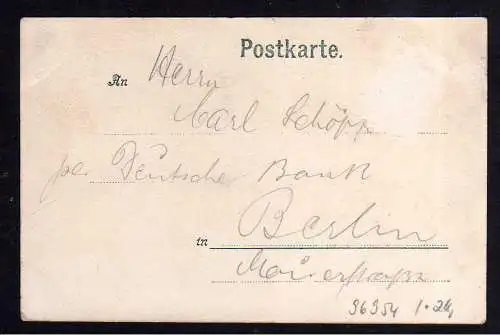 Postkarte.
An Herrn
Carl Schöpp
per Deutsche Bank
in Berlin
Mauerstraße
96954 1.24